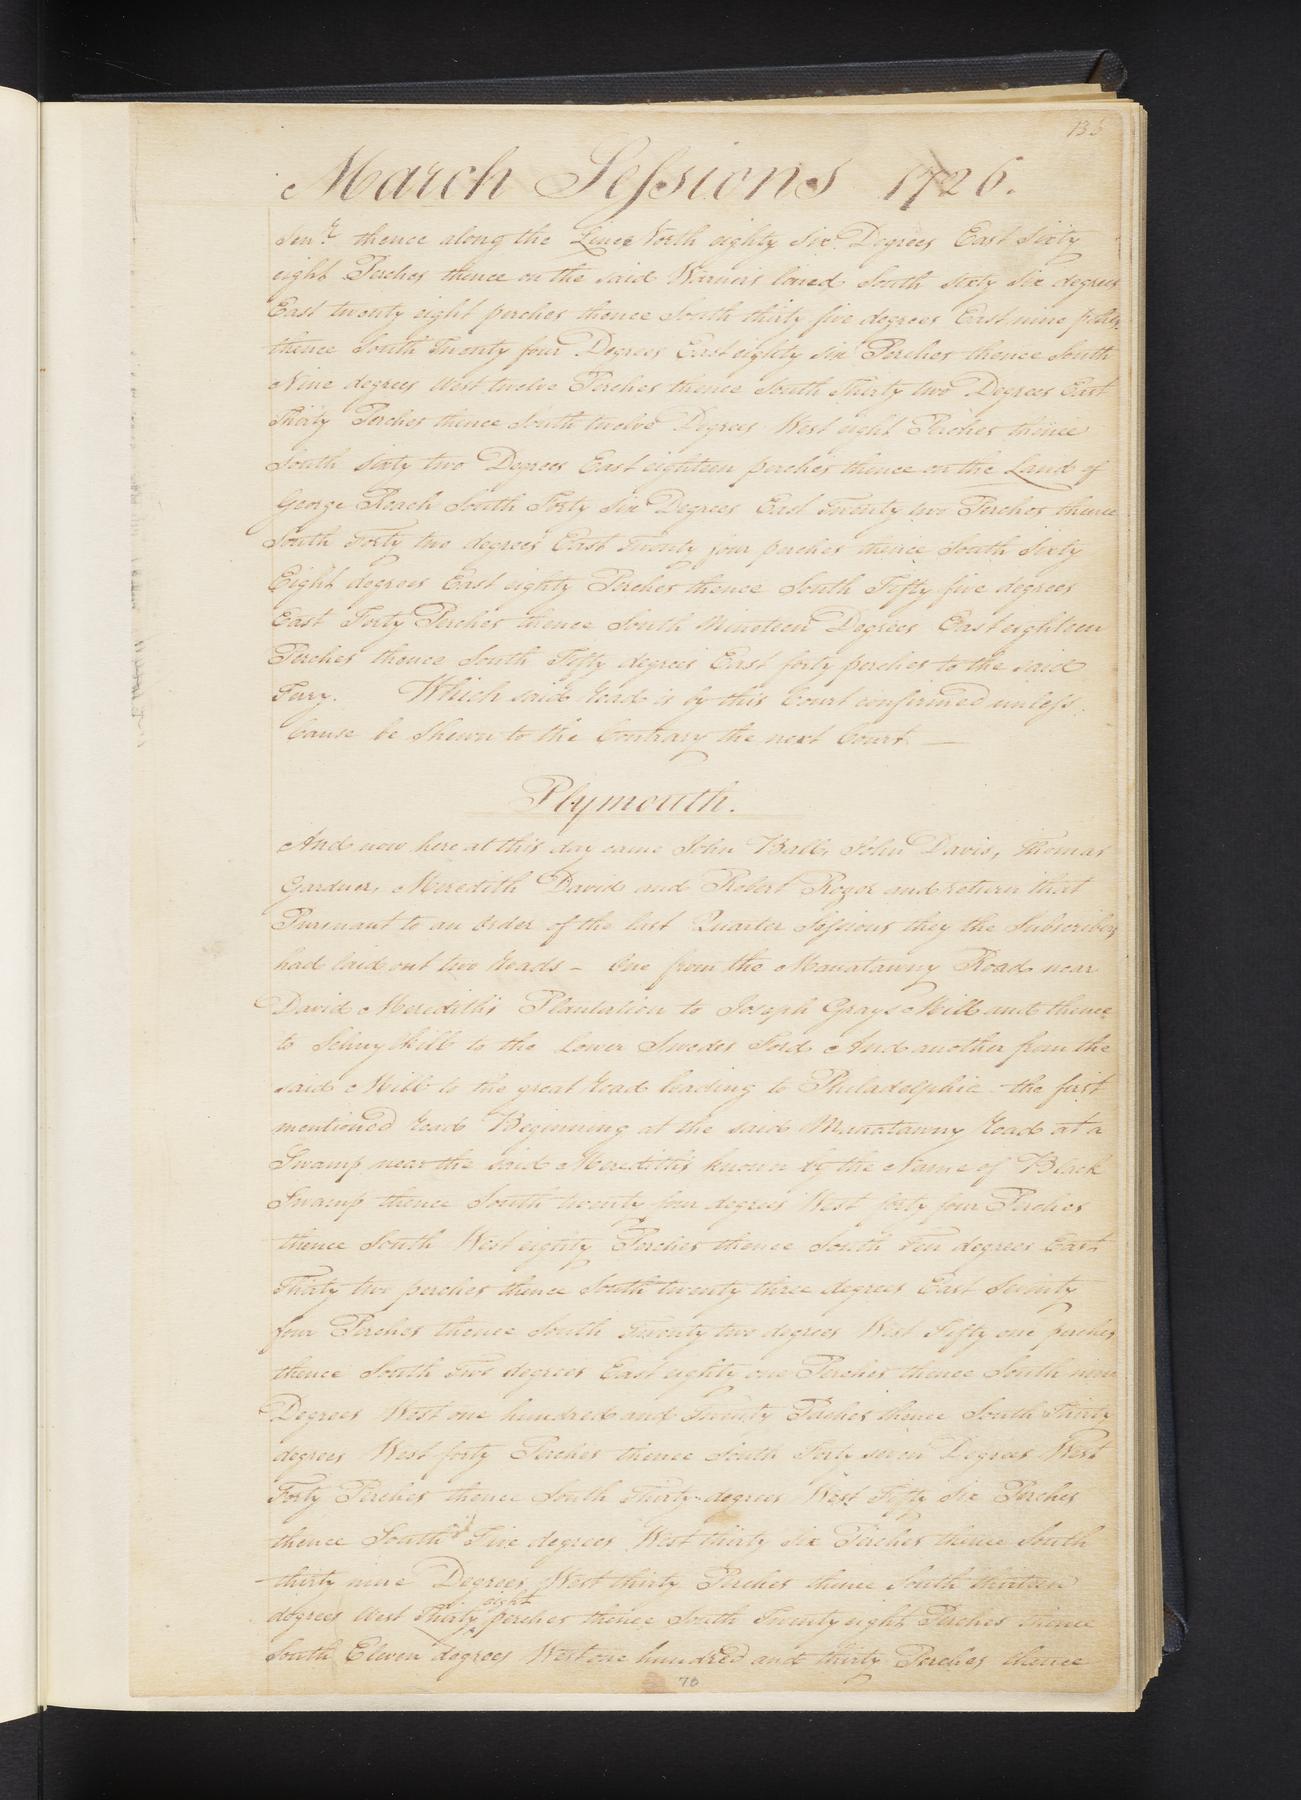 135
March Sessions 1726.
Senr. thence along the Line North eighty Six Degrees East Sixty
eight Perches thence on the said Warners land South sixty six degrees
East twenty eight perches thence South thirty five degrees East nine perches
thence South Twenty four Degrees East eighty six Perches thence South
Nine degrees West twelve Perches thence South Thirty two Degrees East
Thirty Perches thence South twelve Degrees West eight Perches thence
South Sixty two Degrees East eighteen perches thence on the Land of
George Roach South Forty Six Degrees East Twenty two Perches thence
South Forty two degrees East Twenty four perches thence South Sixty
Eight degrees East eighty Perches thence South Fifty five degrees
East Forty Perches thence South Nineteen Degrees East eighteen
Perches thence South Fifty degrees East forty perches to the said
Ferry. Which said Road is by this Court confirmed unless
Cause be Shewn to the Contrary the next Court —
Plymouth.
And now here at this day came John Ball, John Davis, Thomas
Gardner, Meredith David and Robert Roger and return that
Pursuant to an Order of the last Quarter Sessions they the Subscribers
had laid out two Roads – One from the Manatawny Road near
David Merediths Plantation to Joseph Grays Mill and thence
to Schuylkill to the Lower Swedes Ford And another from the
said Mill to the great Road leading to Philadelphia – the first
mentioned Road Beginning at the said Manatawny Road at a
Swamp near the said Merediths known by the Name of Black
Swamp thence South twenty four degrees West forty four Perches
thence South West eighty Perches thence South Ten degrees East
Thirty two perches thence South twenty three degrees East Seventy
four Perches thence South Twenty two degrees West Fifty one perches
thence South Two degrees East eighty one Perches thence South nine
Degrees West one hundred and Twenty Perches thence South Thirty
degrees West forty Perches thence South Forty seven Degrees West
Forty Perches thence South Thirty degrees West Fifty Six Perches
thence South Five degrees West thirty six Perches thence South
thirty nine Degrees West thirty Perches thence South thirteen
degrees West Thirty eight perches thence South Twenty eight Perches thence
South Eleven degrees West one hundred and thirty Perches thence
70